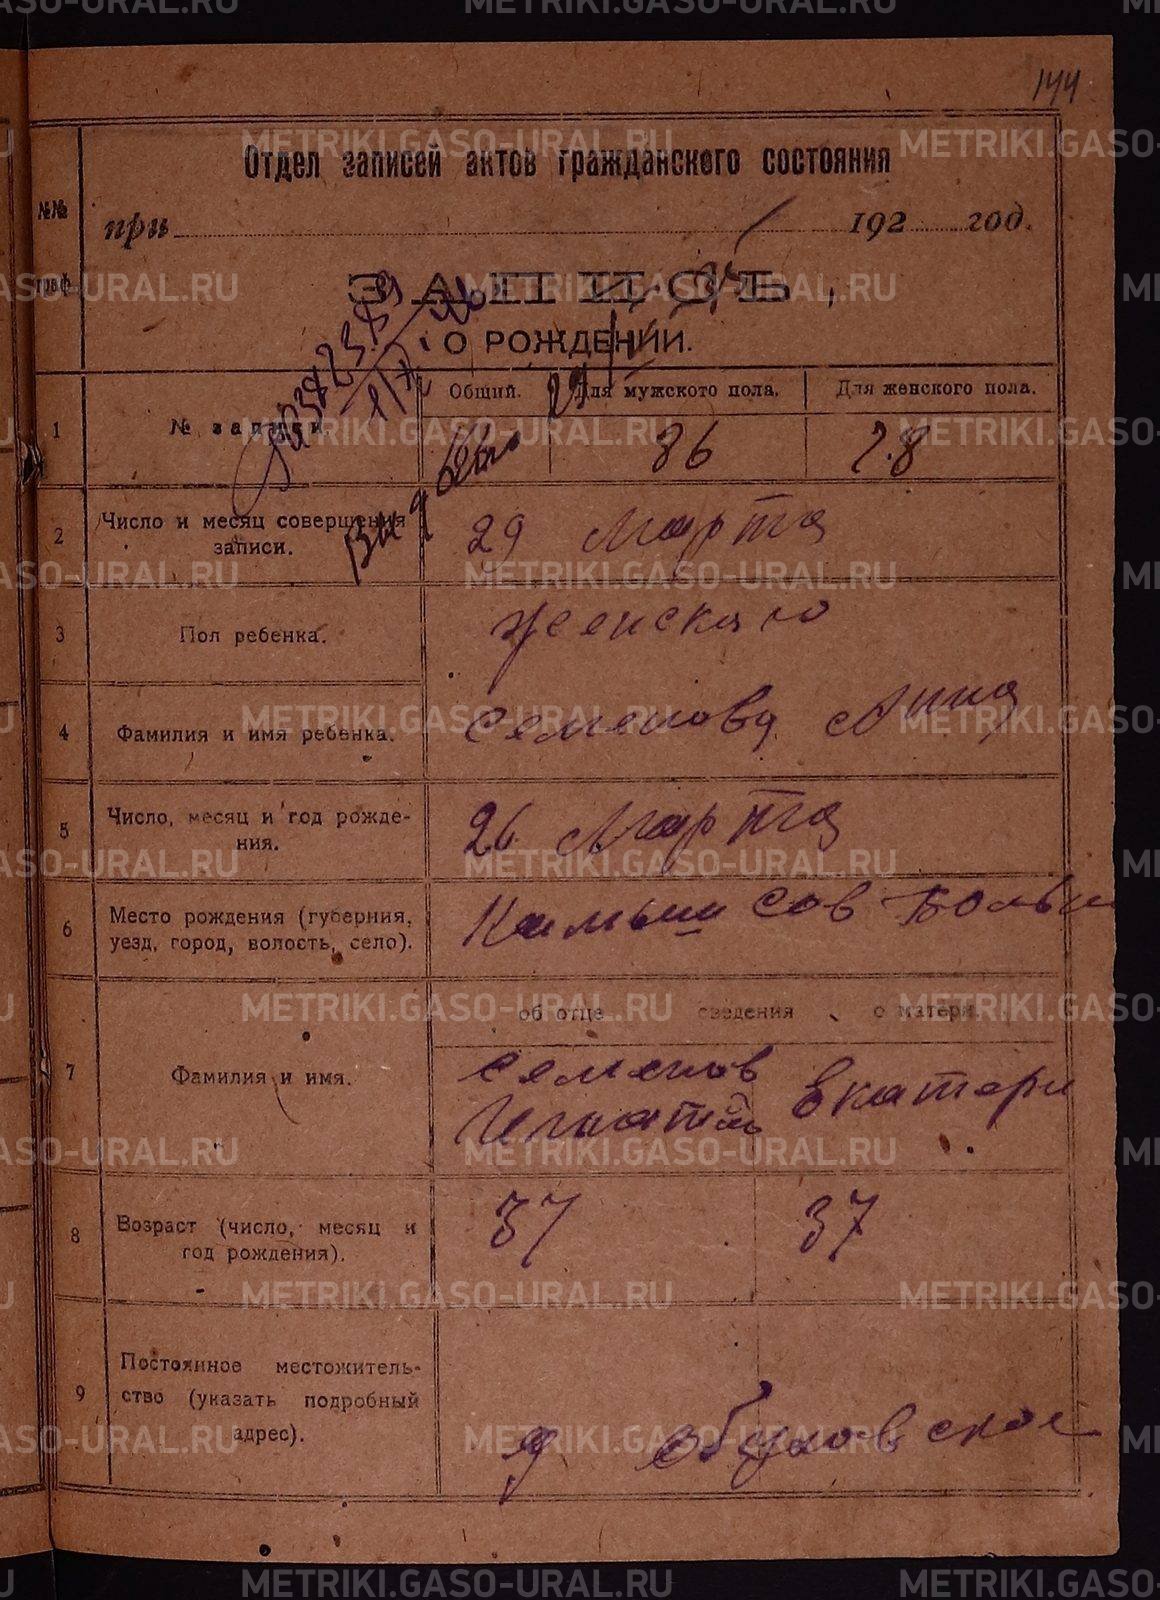 144
Отдел записей актов гражданского состояния
№№ граф.
при 192 год.
ЗАПИСЬ,
О РОЖДЕНИИ.
1 № записи. Общий. Для мужского пола. Для женского пола.
86 78
2 Число и месяц совершения записи. 29 Марта
3 Пол ребенка. женскаго
4 Фамилия и имя ребенка. Семенова Анна
5 Число, месяц и год рождения. 26 Марта
6 Место рождения (губерния, уезд, город, волость, село). Камыш сов Больн
об отце сведения о матери.
7 Фамилия и имя. Семенов Игнатий Екатери
8 Возраст (число, месяц и год рождения). 37 37
9 Постоянное местожительство (указать подробный адрес). д Обуховское
METRIKI.GASO-URAL.RU